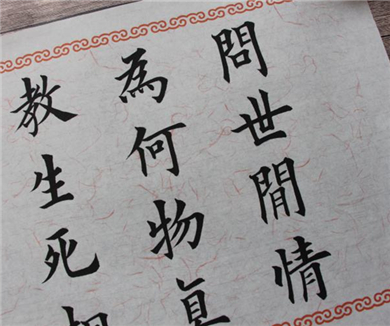 問世閒情
為何物
教生死